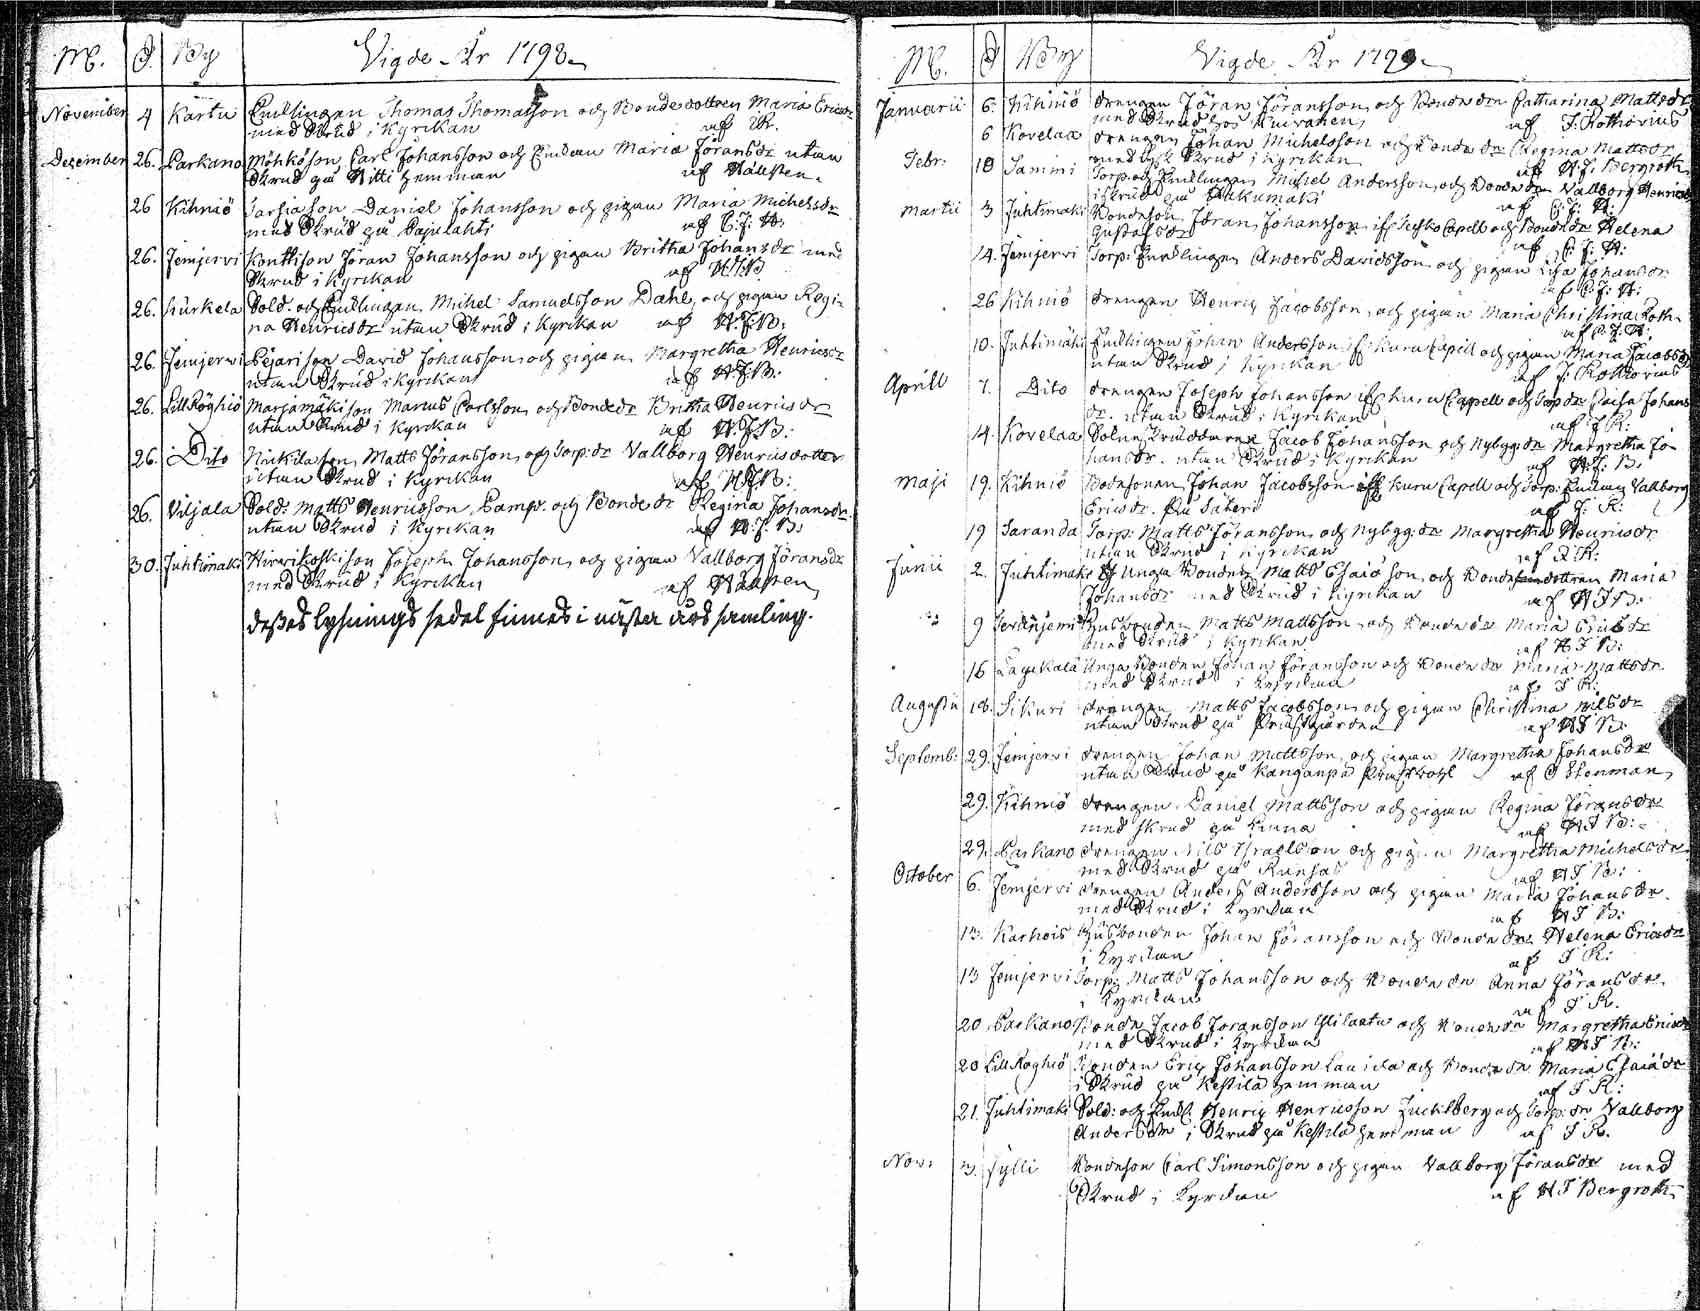 M. D. By Vigde År 1798.
November 4 Karttu Enklingen Thomas Thomasson och Bondedottren Maria Ericsdr
med Skrud i Kyrckan af
Dezember 26. Parkano Möhköson Carl Johansson och Enckan Maria Jöransdr utan
Skrud på Hitti hemman af Hållsten.
26 Kihniö son Daniel Johansson och pigan Maria Michelsdr
med Skrud på Pajulahti af C. J. H:
26. Jemjervi Konttison Jöran Johansson och pigan Britha Johansdr med
Skrud i Kyrckan af H.J.B.
26. hürkela Sold. och Enklingen Michel Samuelsson Dahl, och pigan Regi-
na Henricsdr utan Skrud i Kyrckan af H.J.B:
26. Jemjervi son David Johansson, och pigan Margretha Henricsdr
utan Skrud i Kyrckan af H.J.B:
26. Lill Röyhiö Marjamäkison Marcus Carlsson, och Bondedr Britha Henricsdr
utan Skrud i Kyrckan af H.J.B:
26. Dito son, Matts Jöransson, och Torp:dr Vallborg Henricsdotter
utan Skrud i Kyrckan af H.J.B:
26. Viljala Sold: Matts Henricsson Camp. och Bondedr Regina Johansdr
utan Skrud i Kyrckan af H.J.B:
30. Juhtimäki son Joseph Johansson, och pigan Vallborg Jöransdr
med Skrud i Kyrckan af Hållsten
deßas lysnings sedel finnes i nästa års samling.
M. D By Vigde År 1799.
Januarii 6. Kihniö drengen Jöran Jöransson, och Bondedr Catharina Mattsdr
med Skrud hos af J: Rothovius
6 Kovelaa drengen Johan Michelsson och Bondedr Regina Mattsdr
med Skrud i Kyrckan af H.J. Bergroth
Febr: 10 Sammi Torp. och Enklingen Michel Andersson, och Bondedr Vallborg Henricsdr
i Skrud på af C. J. H:
Martii 3 Juhtimäki Bondeson Jöran Johansson if Capell och Bondedr Helena
Gustafsdr af C. J. H:
14. Jemjervi Torp: Enklingen Anders Davidsson och pigan Lisa Johansdr
af C. J: H:
26 Kihniö drengen Henric Jacobsson, och pigan Maria Christina Roth.
af C. J. H:
10. Juhtimäki Enklingen Johan Andersson if Kuru Capell och pigan Maria Jacobsdr
utan Skrud i Kyrckan af J: Rothovius
Aprill 7. Dito drengen Joseph Johansson if Kuru Capell och Torpdr Caisa Johans
dr. utan Skrud i Kyrckan af J R:
14. Kovelaa Jacob Johansson och Nybygg:dr Margretha Jo
hansdr. utan Skrud i Kyrckan af H. J: B:
Maji 19. Kihniö Bondsonen Johan Jacobsson if Kuru Capell och Torp: Enckan Vallborg
Ericsdr. På Säteri af J: R:
19 Saranda Torp: Matts Jöransson, och Nybygg:dr Margretha Henricsdr
utan Skrud i Kyrckan af J. R:
Junii 2. Juhtimäki Unga Bonden Matts Esaiæson, och Bondedottren Maria
Johansdr med Skrud i Kyrckan af H J B:
9 Husbonden Matts Mattsson, och Bondedr Maria Ericsdr
med Skrud i Kyrckan af H J B:
16 Unga Bonden Johan Jöransson och Bondedr Maria Mattsdr
med Skrud i Kyrckan af J R:
Augusti 18. Sikuri drengen Matts Jacobsson, och pigan Christina Nilsdr
utan Skrud på Prästgården af H J B:
Septemb: 29. Jemjervi drengen Johan Mattsson, och pigan Margretha Johansdr
utan Skrud på Kanganpä af O Stenman
29. Kihniö drengen Daniel Mattsson och pigan Regina Jöransdr
med skrud på Linna af H J B:
29. Parkano drengen Nils Israelsson och pigan Margretha Michelsdr
med Skrud på af H J B:
October 6. Jemjervi drengen Anders Andersson och pigan Maria Johansdr.
med Skrud i Kyrckan af H J B:
13. Karhois Husbonden Johan Jöransson och Bondedr Helena Ericsdr
i Kyrckan af J R:
13 Jemjervi Torp: Matts Johansson och Bondedr Anna Jöransdr.
i Kyrckan af J R.
20 Parkano Bonden Jacob Joransson och Bondedr Margretha Ericsdr
med Skrud i Kyrckan af H J B:
20 Lill Röyhiö Bonden Eric Johansson och Bondedr Maria Esaiædr
i Skrud på Kestilä hemman af J R:
21. Juhtimäki Sold: och Enkl. Henric Henricsson och Torp:dr Vallborg
Andersdr i Skrud på Kestilä hemman af J R.
Nov: 3. Bondeson Carl Simonsson och pigan Vallborg Jöransdr med
Skrud i Kyrckan af H J Bergroth